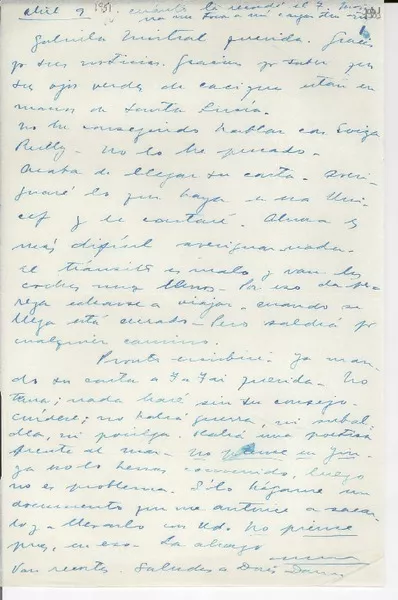 abril 9 1951 cuánto la recordé el 7
Gabriela Mistral querida. Gracias
por sus noticias. Gracias por saber que
sus ojos verdes de cacique están en
manos de Santa Lucía.
no he conseguido hablar con
no lo he pensado
Acaba de llegar su carta. Averi-
guaré lo que haya en na Uni-
cef y le contaré. Ahora es
más difícil averiguar nada.
el tránsito es malo y van los
coches muy llenos. Por eso da pe-
reza echarse a viajar. cuando se
llega está cerrado. Pero saldrá por
cualquier camino.
Pronto escribiré. Ya man-
dé su carta a querida. No
tema; nada haré sin su consejo.
no habrá guerra, ni
ni
frente al mar. no piense en
ya no lo hemos convenido, luego
no es problema. Sólo hágame un
documento que me autorice a sacar-
lo y llevarlo con Ud. No piense
pues, en eso. La abrazo
Van recortes. Saludos a Doris Dana